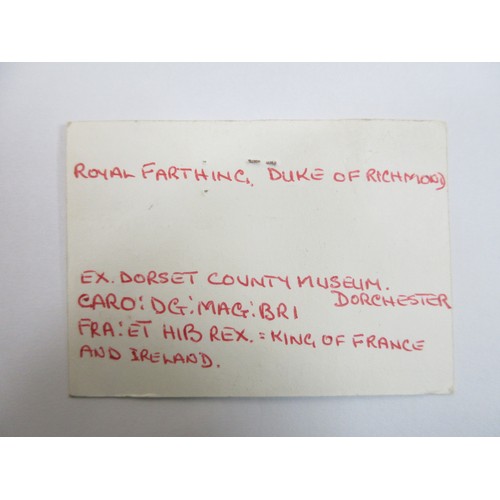 ROYAL FARTHING. DUKE OF RICHMOND
EX. DORSET COUNTY MUSEUM.
DORCHESTER
CARO: DG: MAG: BRI
FRA: ET HIB REX. = KING OF FRANCE
AND IRELAND.